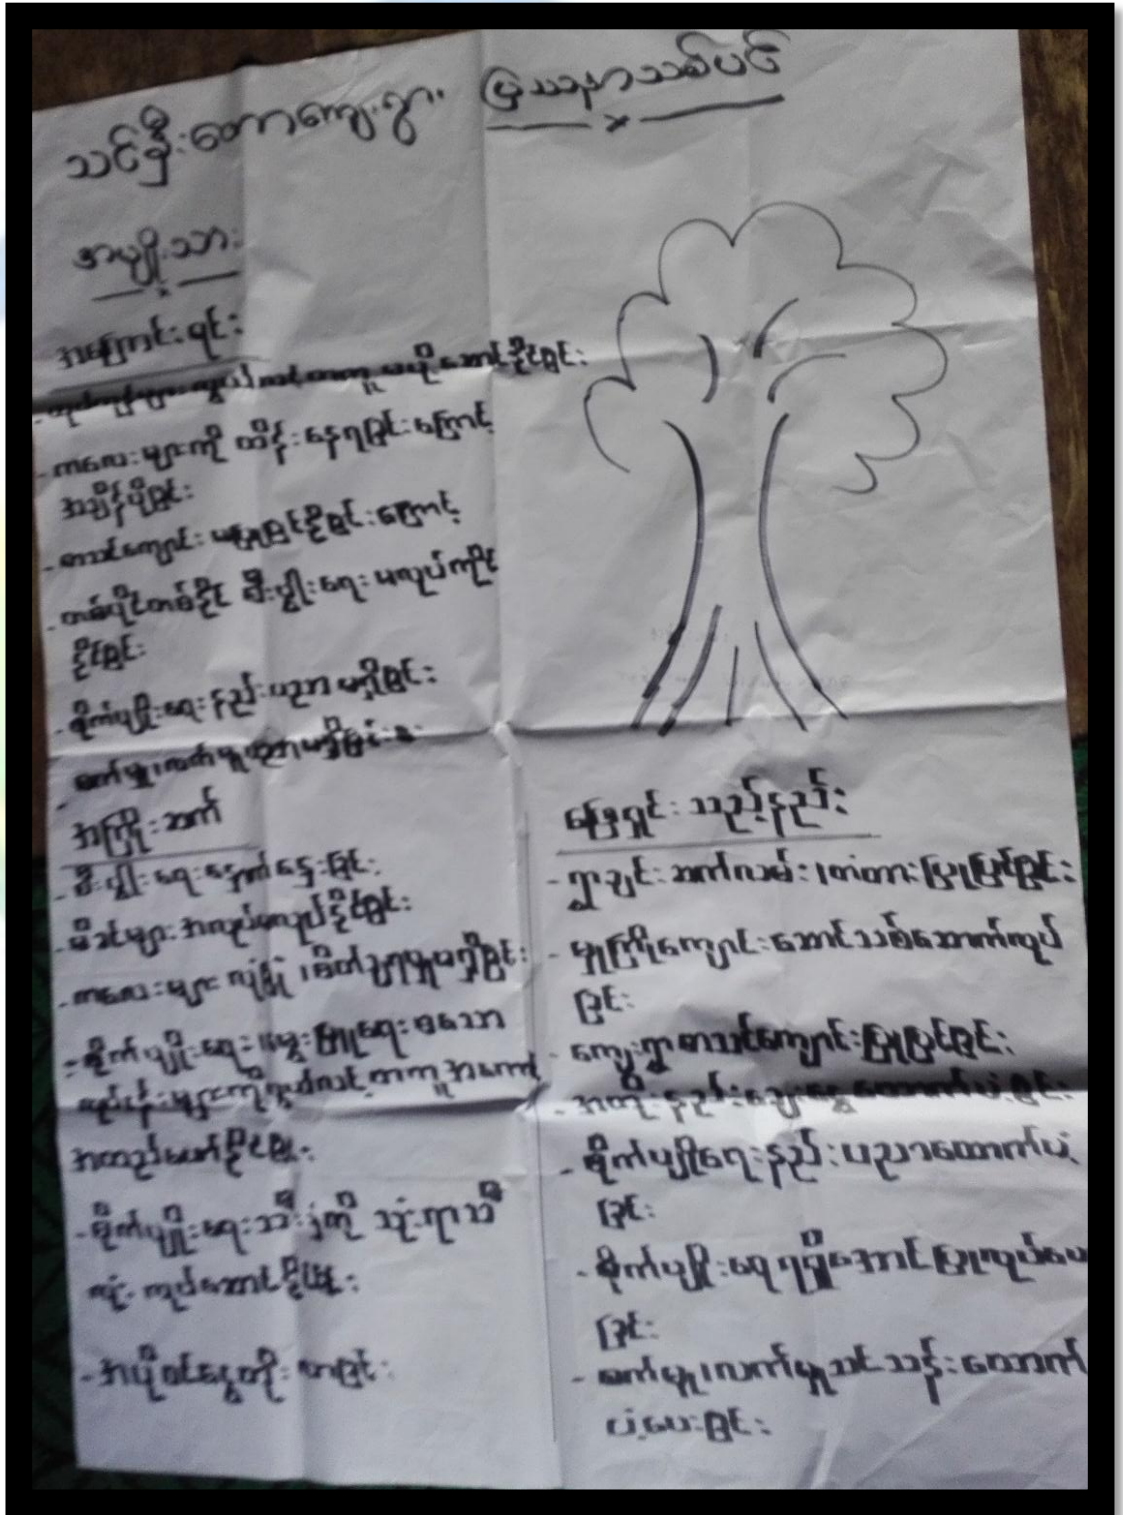 သင်နှီးတောကျေးရွာ၊ ပြဿနာသစ်ပင်
အမျိုးသား
အကြောင်းရင်း
- ကလေးများကို ထိန်းနေရခြင်းကြောင့်
အချိန်ပိုခြင်း
- စာသင်ကျောင်း မပြုပြင်နိုင်ခြင်းကြောင့်
- တစ်ပိုင်တစ်နိုင် စီးပွါးရေး မလုပ်ကိုင်
နိုင်ခြင်း
- စိုက်ပျိုးရေးနည်းပညာ မရှိခြင်း
အကြိုးဆက်
- စီးပွါးရေးနှောင့်နှေးခြင်း
- မိခင်များ အလုပ်မလုပ်နိုင်ခြင်း
- ကလေးများ လုံခြုံ စိတ်ချရမှုမရှိခြင်း
- စိုက်ပျိုးရေး၊ မွေးမြူရေး စသော
လုပ်ငန်းများကို
အထည်ဖော်နိုင်ခြင်း
- စိုက်ပျိုးရေးသီးနှံကို သုံးရာသီ
လုံး လုပ်ဆောင်နိုင်ခြင်း
- အပိုဝင်ငွေတိုးလာခြင်း
ဖြေရှင်းသည့်နည်း
- ရွာချင်းဆက်လမ်း၊တံတားပြုပြင်ခြင်း
- မူကြိုကျောင်းဆောင်သစ်ဆောက်လုပ်
ခြင်း
- ကျေးရွာစာသင်ကျောင်းပြုပြင်ခြင်း
- အတိုးနည်းချေးငွေထောက်ပံ့ခြင်း
- စိုက်ပျိုးရေးနည်းပညာထောက်ပံ့
ခြင်း
- စိုက်ပျိုးရေရရှိအောင်ပြုလုပ်ပေး
ခြင်း
- စက်မှုလက်မှုသင်တန်းထောက်
ပံ့ပေးခြင်း